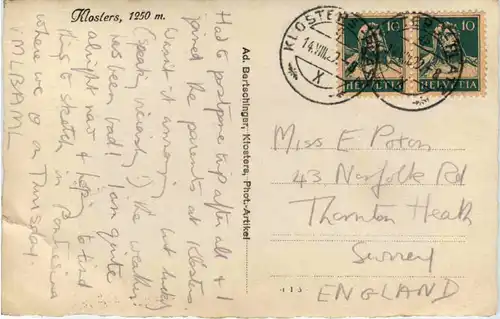 Klosters, 1250 m.
Had to postpone trip after all & I
joined the parents at Klosters.
Wasn't it annoying but lucky
(speaking viciously!) the weather
has been bad! I am quite
alright now & hoping to find
this to sketch in Pontresina
where we go on Thursday.
Ad. Bertschinger, Klosters, Phot-Artikel
KLOSTERS
14.VIII.2
X
10
10
HELVETIA
HELVETIA
Miss E Poton
43. Norfolk Rd
Thornton Heath
Surrey
ENGLAND